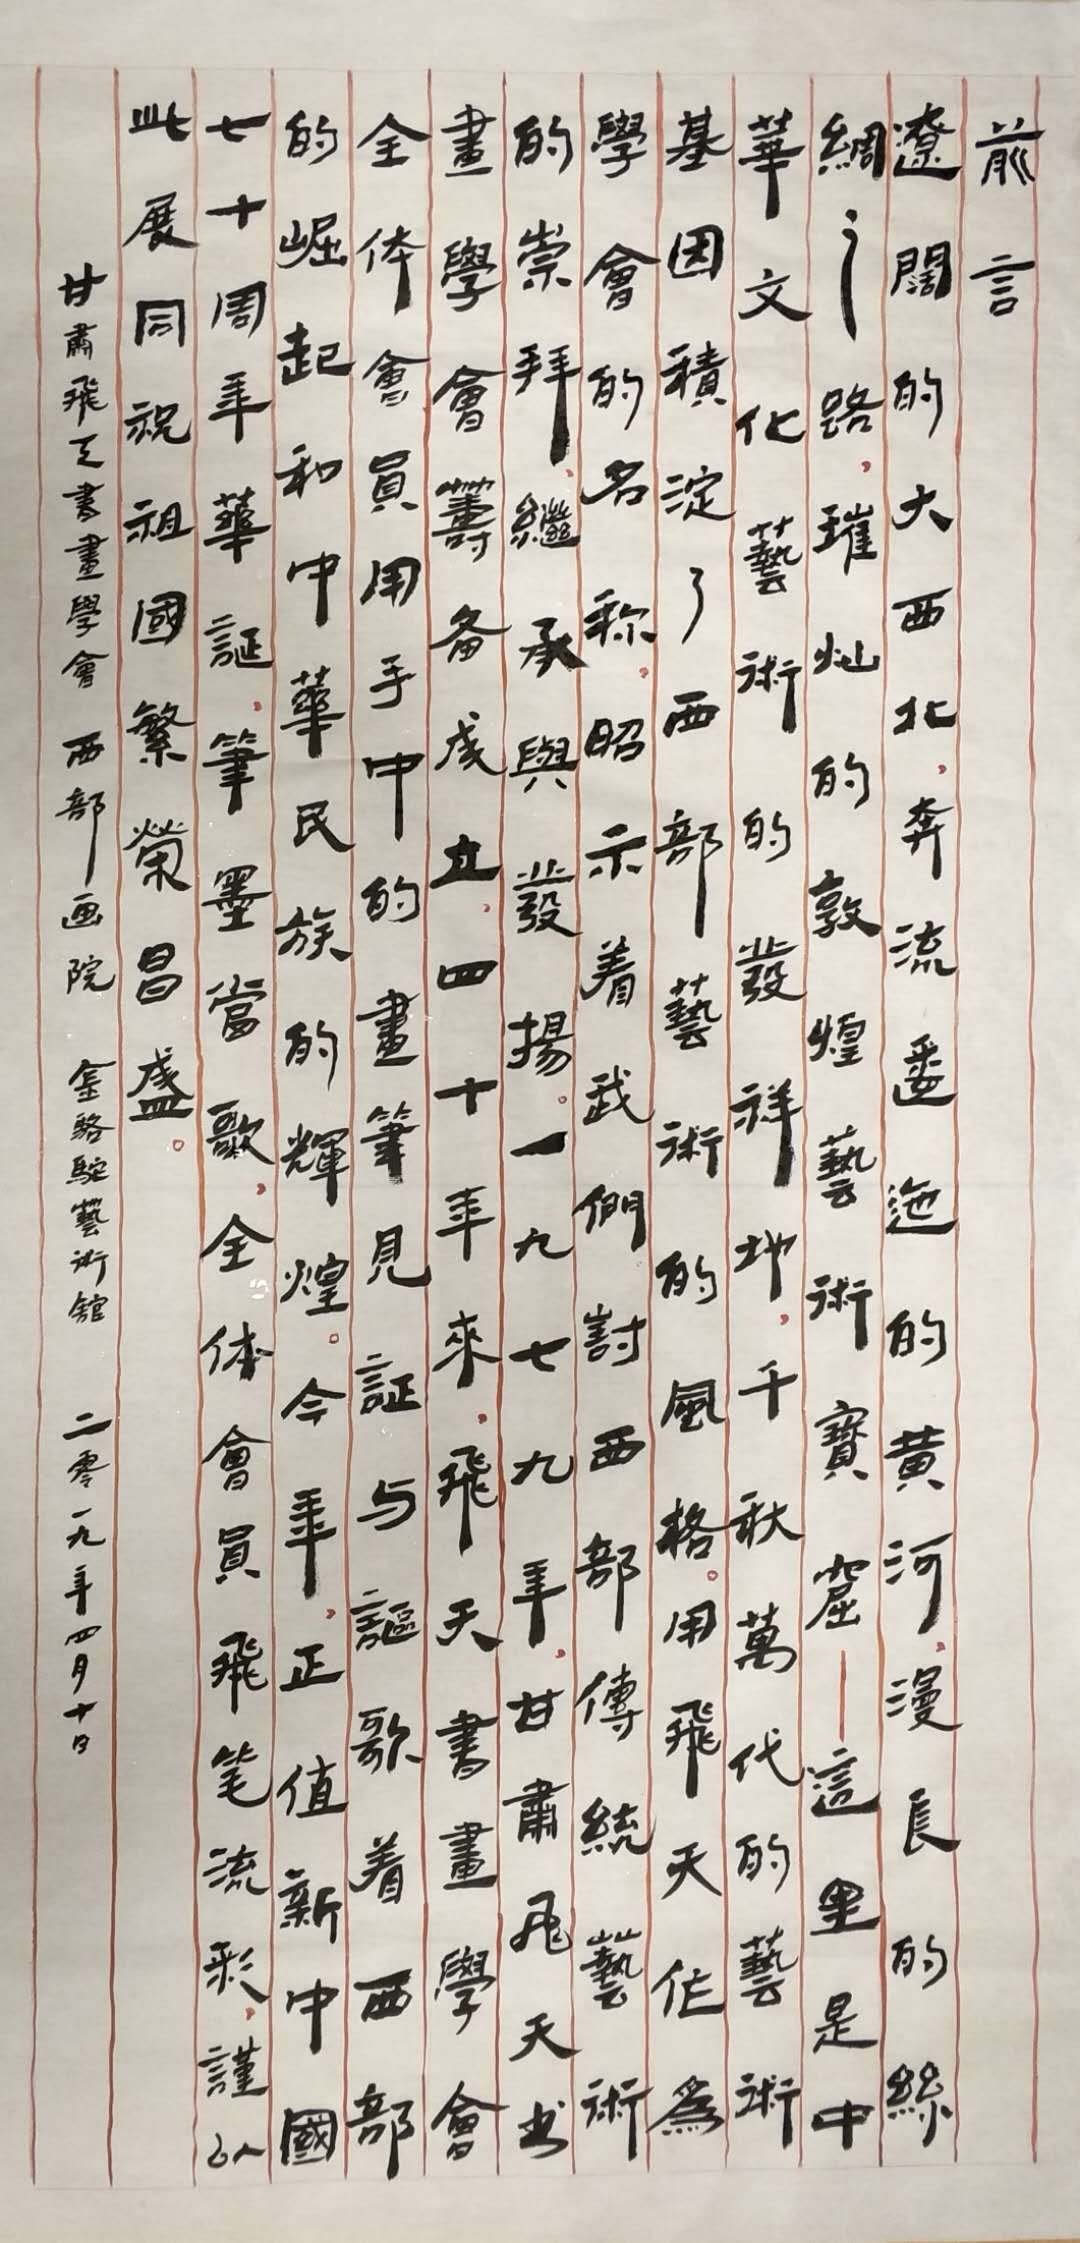 前言
遼闊的大西北，奔流逶迤的黃河，漫長的絲
綢之路，璀灿的敦煌藝術寶窟——這里是中
華文化藝術的發祥地，千秋萬代的藝術
基因積淀了西部藝術的風格。用飛天作為
學會的名称昭示着我們討西部傳統藝術
的崇拜，繼承與發揚。一九七九年，甘肅飛天书
畫學會籌备成立，四十年來，飛天書畫學會
全体會員用手中的畫筆見証与謳歌着西部
的崛起和中華民族的輝煌。今年，正值新中國
七十周年華誕，筆墨當歌，全体會員飛笔流彩，謹以
此展同祝祖國繁榮昌盛。
甘肅飛天書畫學會 西部画院 金駱駝藝術舘 二零一九年四月十日